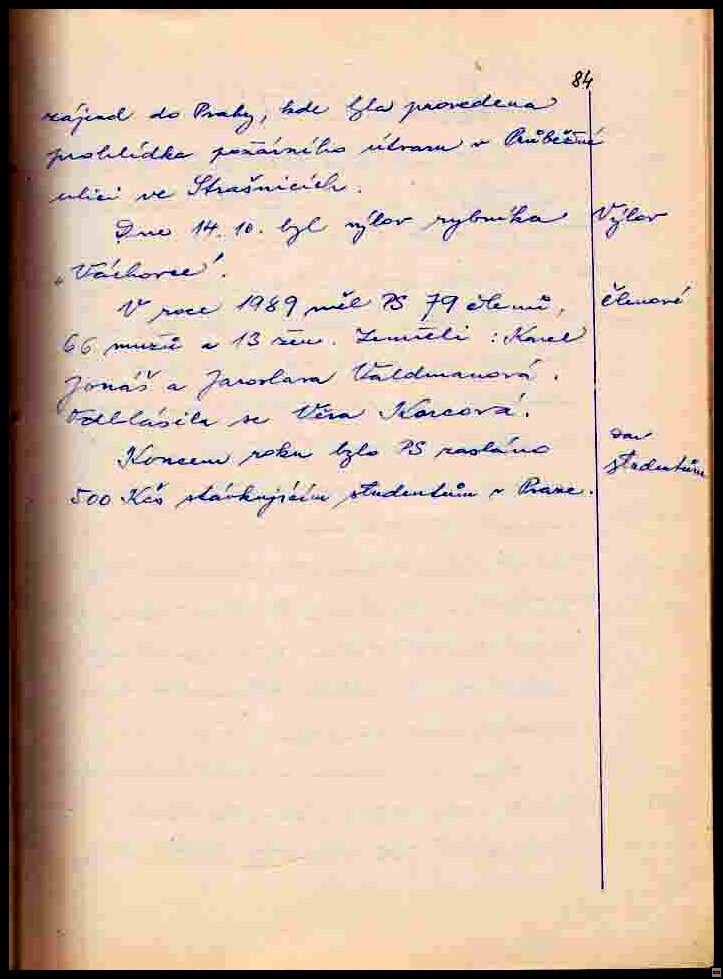 84
zájezd do Prahy, kde byla provedena
prohlídka požárního útvaru v Průběžné
ulici ve Strašnicích.
Dne 14. 10. byl výlov rybníka
Výlov
„Váchovce".
V roce 1989 měl PS 79 členů,
členové
66 mužů a 13 žen. Zemřeli : Karel
Jonáš a Jaroslava Valdmanová.
Odhlásila se Věra Korcová.
Koncem roku bylo PS zasláno
dar
studentům
500 Kčs stávkujícím studentům v Praze.